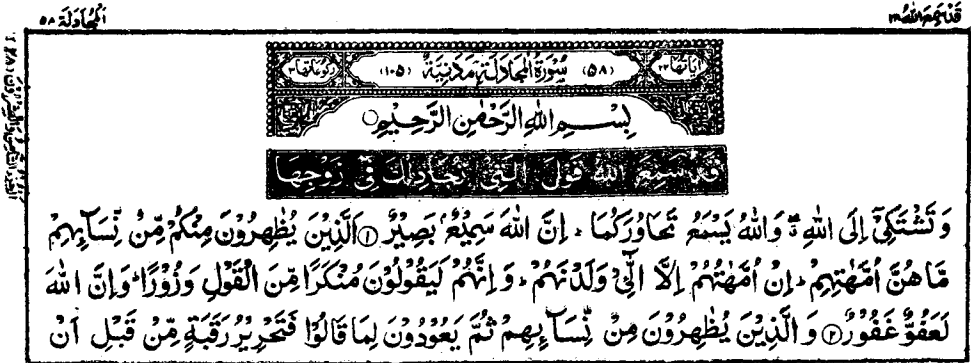 قَدْ سَمِعَ اللّٰهُ ٢٨
الْمُجَادلَة ٥٨
اٰیَاتُهَا ٢٢ (٥٨) سُوْرَةُ الْمُجَادَلَةِ مَدَنِیَّةٌ (١٠٥) رُكُوْعَاتُهَا ٣
بِسْــــمِ اللّٰهِ الرَّحْمٰنِ الرَّحِیْمِ
قَدْ سَمِعَ اللّٰهُ قَوْلَ الَّتِیْ تُجَادِلُكَ فِیْ زَوْجِهَا
وَ تَشْتَكِیْۤ اِلَی اللّٰهِ ۖۗ وَ اللّٰهُ یَسْمَعُ تَحَاوُرَكُمَا ؕ اِنَّ اللّٰهَ سَمِیْعٌۢ بَصِیْرٌ ۝١ اَلَّذِیْنَ یُظٰهِرُوْنَ مِنْكُمْ مِّنْ نِّسَآىِٕهِمْ
مَّا هُنَّ اُمَّهٰتِهِمْ ؕ اِنْ اُمَّهٰتُهُمْ اِلَّا الّٰٓـِٔیْ وَلَدْنَهُمْ ؕ وَ اِنَّهُمْ لَیَقُوْلُوْنَ مُنْكَرًا مِّنَ الْقَوْلِ وَ زُوْرًا ؕ وَ اِنَّ اللّٰهَ
لَعَفُوٌّ غَفُوْرٌ ۝٢ وَ الَّذِیْنَ یُظٰهِرُوْنَ مِنْ نِّسَآىِٕهِمْ ثُمَّ یَعُوْدُوْنَ لِمَا قَالُوْا فَتَحْرِیْرُ رَقَبَةٍ مِّنْ قَبْلِ اَنْ